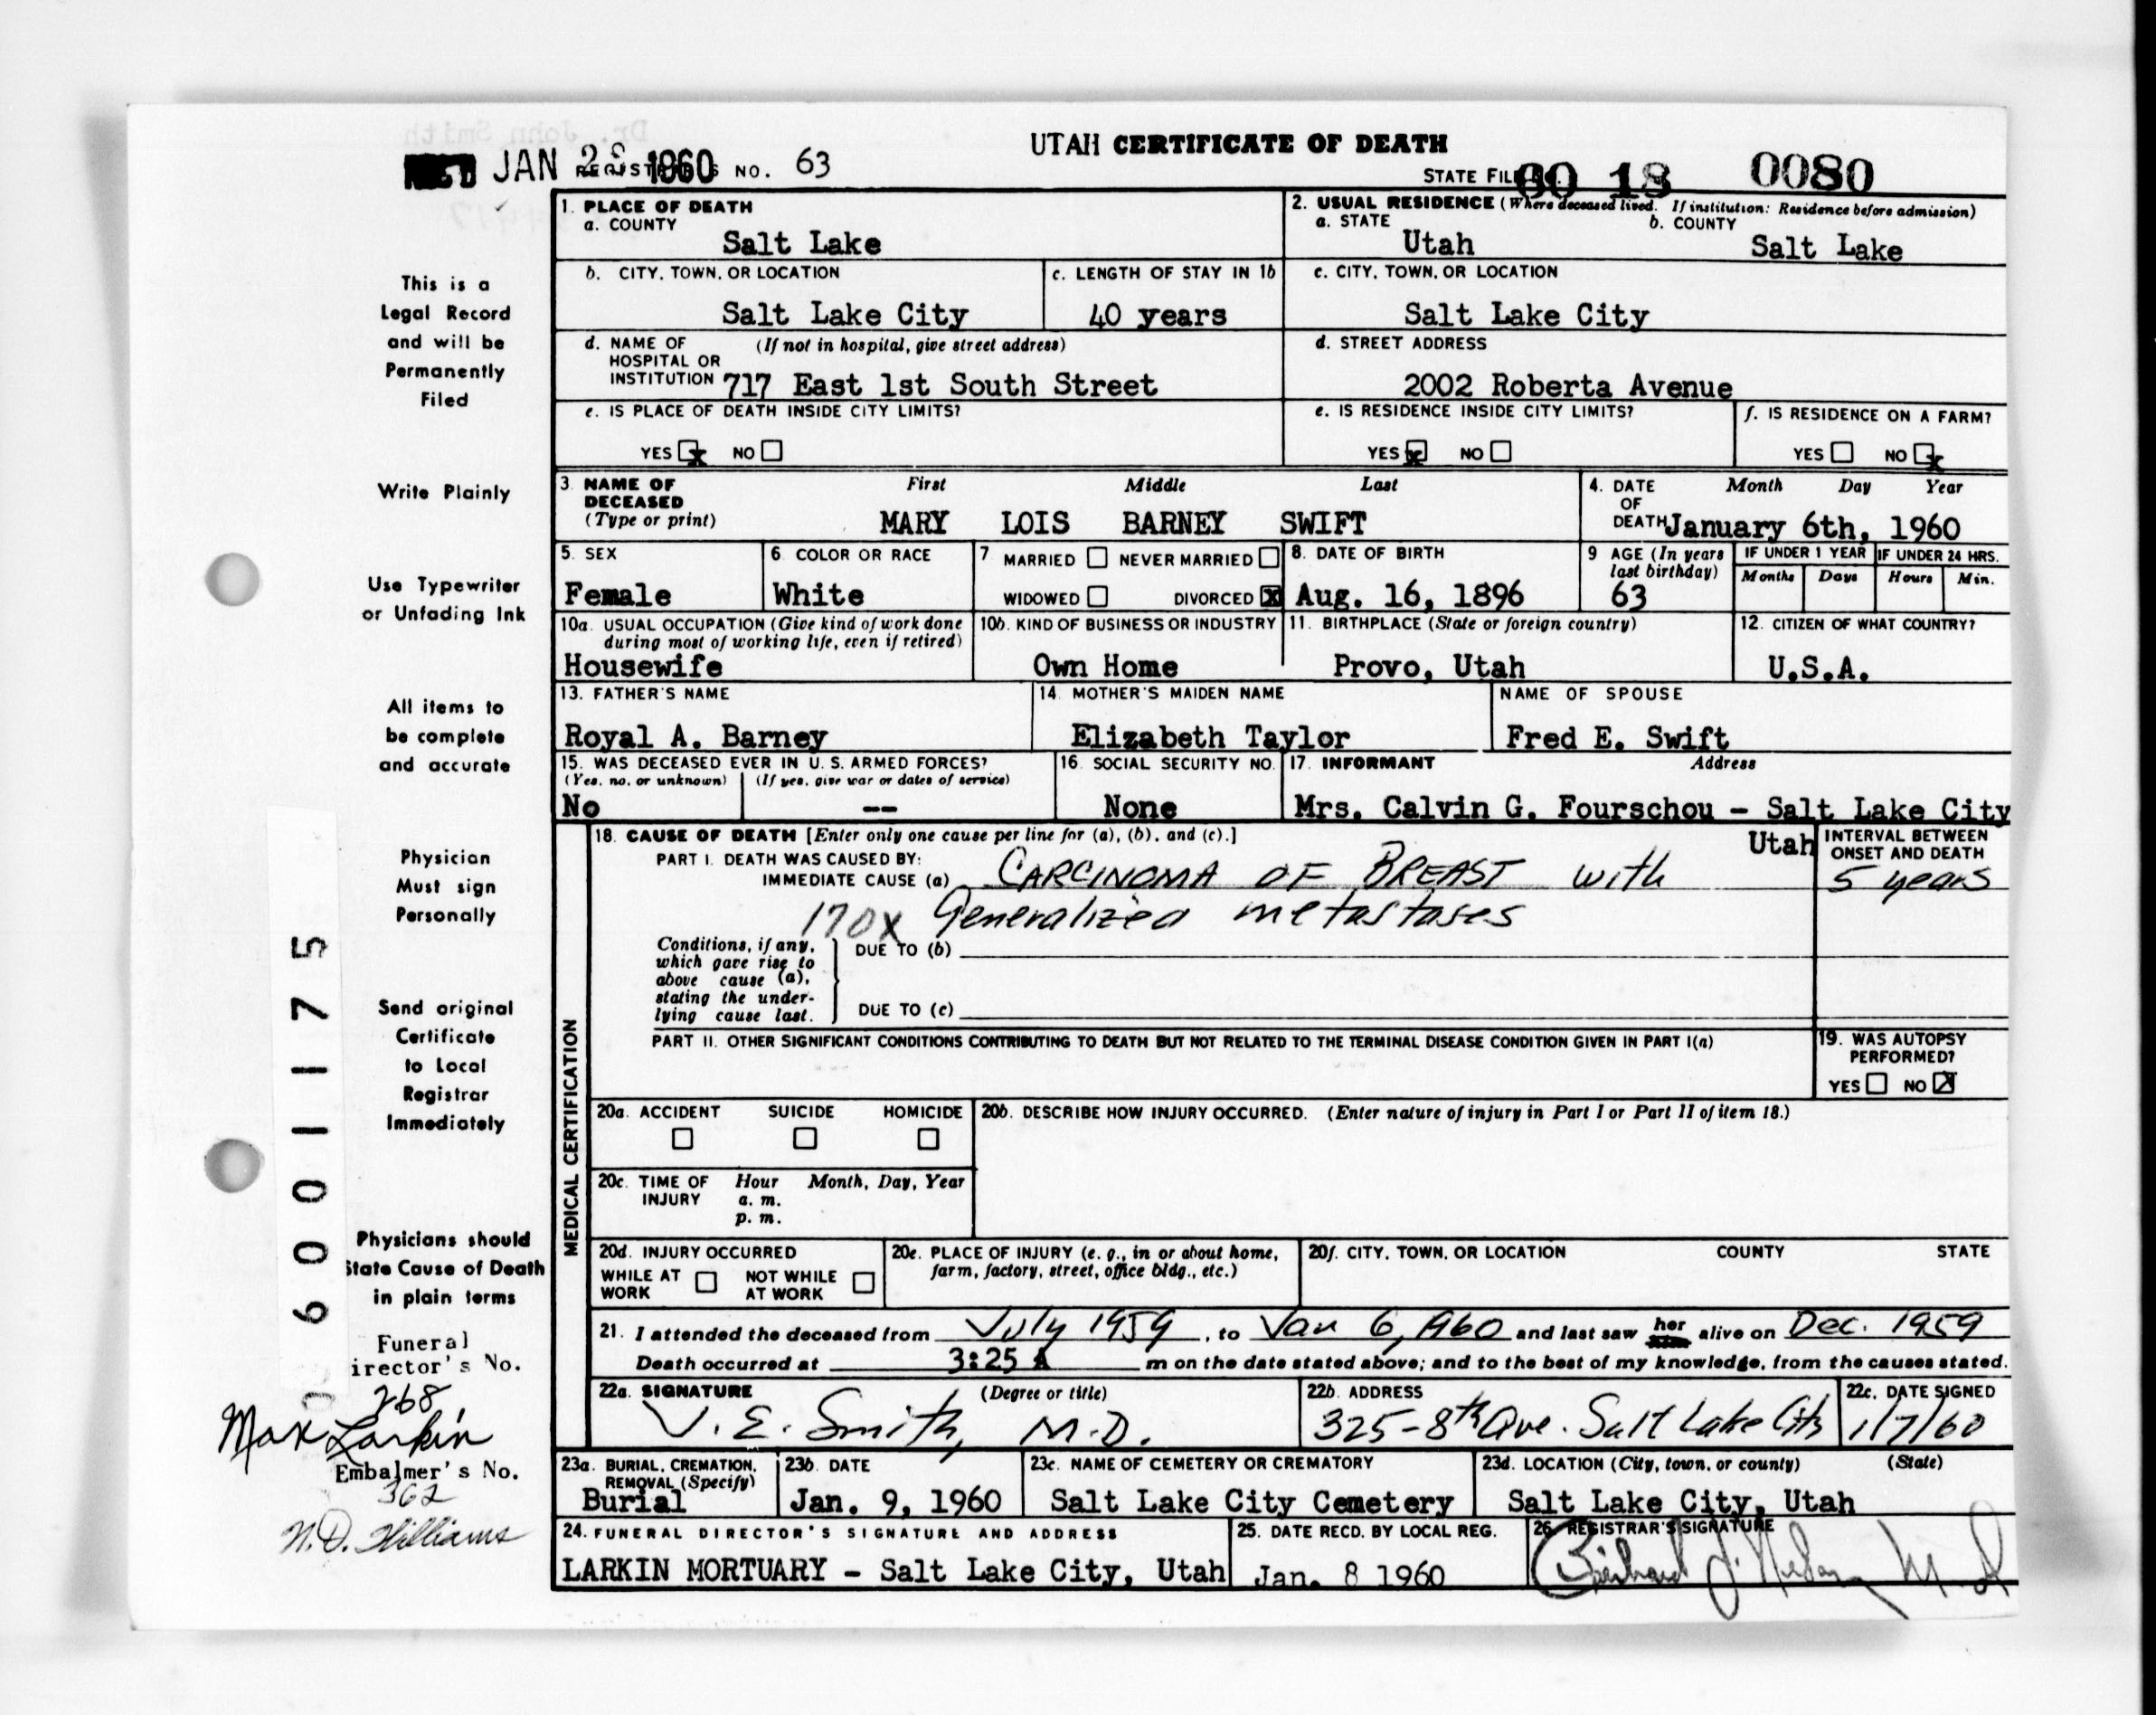 UTAH CERTIFICATE OF DEATH
JAN 1960 NO. 63
STATE FILE 60 18 0080
1. PLACE OF DEATH
a. COUNTY
Salt Lake
2. USUAL RESIDENCE (Where deceased lived. If institution: Residence before admission)
a. STATE b. COUNTY
Utah Salt Lake
b. CITY, TOWN, OR LOCATION c. LENGTH OF STAY IN 1b c. CITY, TOWN, OR LOCATION
Salt Lake City 40 years Salt Lake City
d. NAME OF HOSPITAL OR INSTITUTION (If not in hospital, give street address) d. STREET ADDRESS
717 East 1st South Street 2002 Roberta Avenue
e. IS PLACE OF DEATH INSIDE CITY LIMITS? e. IS RESIDENCE INSIDE CITY LIMITS? f. IS RESIDENCE ON A FARM?
YES x NO YES x NO YES NO x
3. NAME OF DECEASED (Type or print) First Middle Last 4. DATE OF DEATH Month Day Year
MARY LOIS BARNEY SWIFT January 6th, 1960
5. SEX 6. COLOR OR RACE 7 MARRIED NEVER MARRIED 8. DATE OF BIRTH 9 AGE (In years last birthday) IF UNDER 1 YEAR IF UNDER 24 HRS.
Months Days Hours Min.
Female White WIDOWED DIVORCED X Aug. 16, 1896 63
10a. USUAL OCCUPATION (Give kind of work done during most of working life, even if retired) 10b. KIND OF BUSINESS OR INDUSTRY 11. BIRTHPLACE (State or foreign country) 12. CITIZEN OF WHAT COUNTRY?
Housewife Own Home Provo, Utah U.S.A.
13. FATHER'S NAME 14. MOTHER'S MAIDEN NAME NAME OF SPOUSE
Royal A. Barney Elizabeth Taylor Fred E. Swift
15. WAS DECEASED EVER IN U. S. ARMED FORCES? 16. SOCIAL SECURITY NO. 17. INFORMANT Address
(Yes, no, or unknown) (If yes, give war or dates of service)
No -- None Mrs. Calvin G. Fourschou - Salt Lake City
Utah
18. CAUSE OF DEATH [Enter only one cause per line for (a), (b), and (c).] INTERVAL BETWEEN ONSET AND DEATH
PART I. DEATH WAS CAUSED BY:
IMMEDIATE CAUSE (a) CARCINOMA OF BREAST with 5 years
170X Generalized metastases
Conditions, if any, which gave rise to above cause (a), stating the underlying cause last.
DUE TO (b)
DUE TO (c)
PART II. OTHER SIGNIFICANT CONDITIONS CONTRIBUTING TO DEATH BUT NOT RELATED TO THE TERMINAL DISEASE CONDITION GIVEN IN PART I(a)
19. WAS AUTOPSY PERFORMED?
YES NO X
MEDICAL CERTIFICATION
20a. ACCIDENT SUICIDE HOMICIDE 20b. DESCRIBE HOW INJURY OCCURRED. (Enter nature of injury in Part I or Part II of item 18.)
20c. TIME OF INJURY Hour Month, Day, Year
a. m.
p. m.
20d. INJURY OCCURRED 20e. PLACE OF INJURY (e. g., in or about home, farm, factory, street, office bldg., etc.) 20f. CITY, TOWN, OR LOCATION COUNTY STATE
WHILE AT WORK NOT WHILE AT WORK
21. I attended the deceased from July 1959, to Jan 6, 1960 and last saw her alive on Dec. 1959
Death occurred at 3:25 A m on the date stated above; and to the best of my knowledge, from the causes stated.
22a. SIGNATURE (Degree or title) 22b. ADDRESS 22c. DATE SIGNED
J. E. Smith, M.D. 325-8th Ave. Salt Lake City 1/7/60
23a. BURIAL, CREMATION, REMOVAL (Specify) 23b. DATE 23c. NAME OF CEMETERY OR CREMATORY 23d. LOCATION (City, town, or county) (State)
Burial Jan. 9, 1960 Salt Lake City Cemetery Salt Lake City, Utah
24. FUNERAL DIRECTOR'S SIGNATURE AND ADDRESS 25. DATE RECD. BY LOCAL REG. 26. REGISTRAR'S SIGNATURE
LARKIN MORTUARY - Salt Lake City, Utah Jan. 8 1960
This is a
Legal Record
and will be
Permanently
Filed
Write Plainly
Use Typewriter
or Unfading Ink
All items to
be complete
and accurate
Physician
Must sign
Personally
Send original
Certificate
to Local
Registrar
Immediately
Physicians should
State Cause of Death
in plain terms
Funeral
irector's No.
268
Max Larkin
Embalmer's No.
362
N.D. Williams
6001175